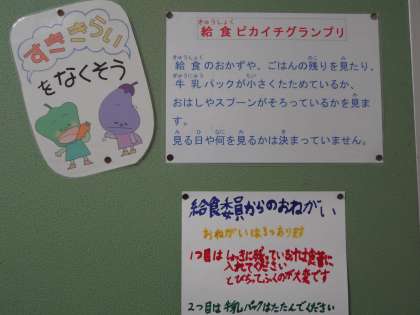 すききらい
をなくそう
給食ピカイチグランプリ
給食のおかずや、ごはんの残りを見たり、
牛乳パックが小さくたためているか、
おはしやスプーンがそろっているかを見ま
す。
見る日や何を見るかは決まっていません。
給食委員からのおねがい
おねがいは3つあります
1つ目は しょっきに残っているおかずは食かんに
入れてください
とびちってふくのが大変です
2つ目は 牛乳パックはたたんでください